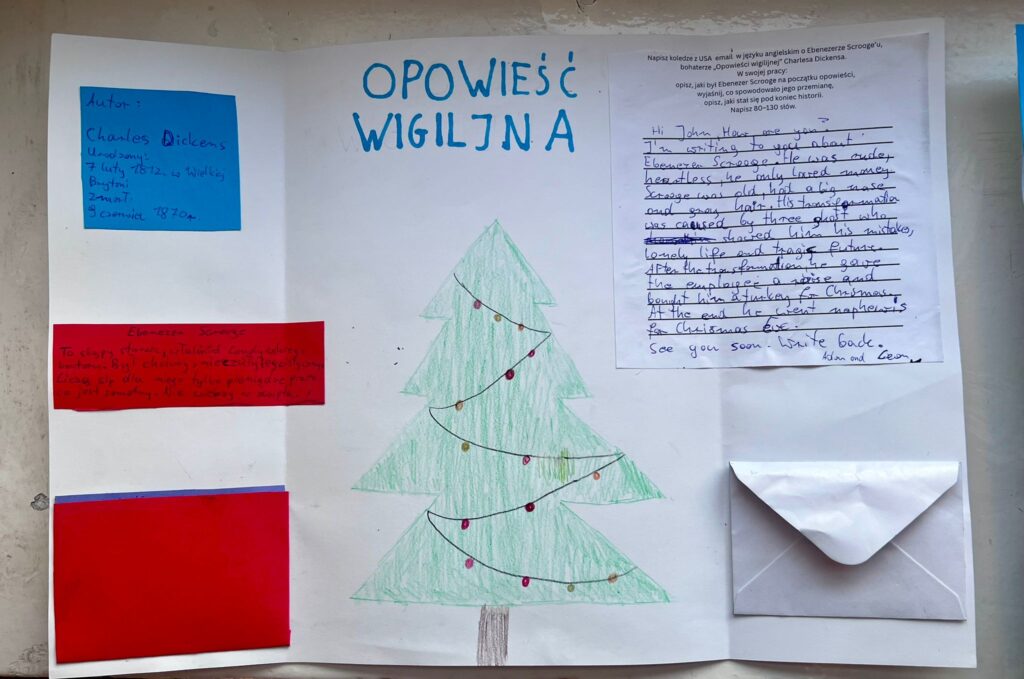 OPOWIEŚĆ
WIGILJNA
Autor:
Charles Dickens
Urodzony:
7 luty 1812r. w Wielkiej
Brytani
zmarł:
9 czerwca 1870r
Ebenezer Scrooge
To skąpy starzec, właściciel
był chciwy
Liczą się dla niego tylko pieniądze przez
co jest samotny. Nie wierzy w
Napisz koledze z USA email w języku angielskim o Ebenezerze Scrooge'u,
bohaterze „Opowieści wigilijnej" Charlesa Dickensa.
W swojej pracy:
opisz, jaki był Ebenezer Scrooge na początku opowieści,
wyjaśnij, co spowodowało jego przemianę,
opisz, jaki stał się pod koniec historii.
Napisz 80–130 słów.
Hi John, How are you?
I'm writing to you about
Ebenezer Scrooge. He was rude,
heartless, he only loved money
Scrooge was old, had a big nose
and gray hair. His transformation
was caused by three ghost who
showed him his mistakes,
lonely life and tragic future.
After the transformation, he gave
the employee a raise and
bought him a turkey for Chrismas.
At the end he went naphew's
for Chrismas Eve.
See you soon. Write back.
Adam and Leon